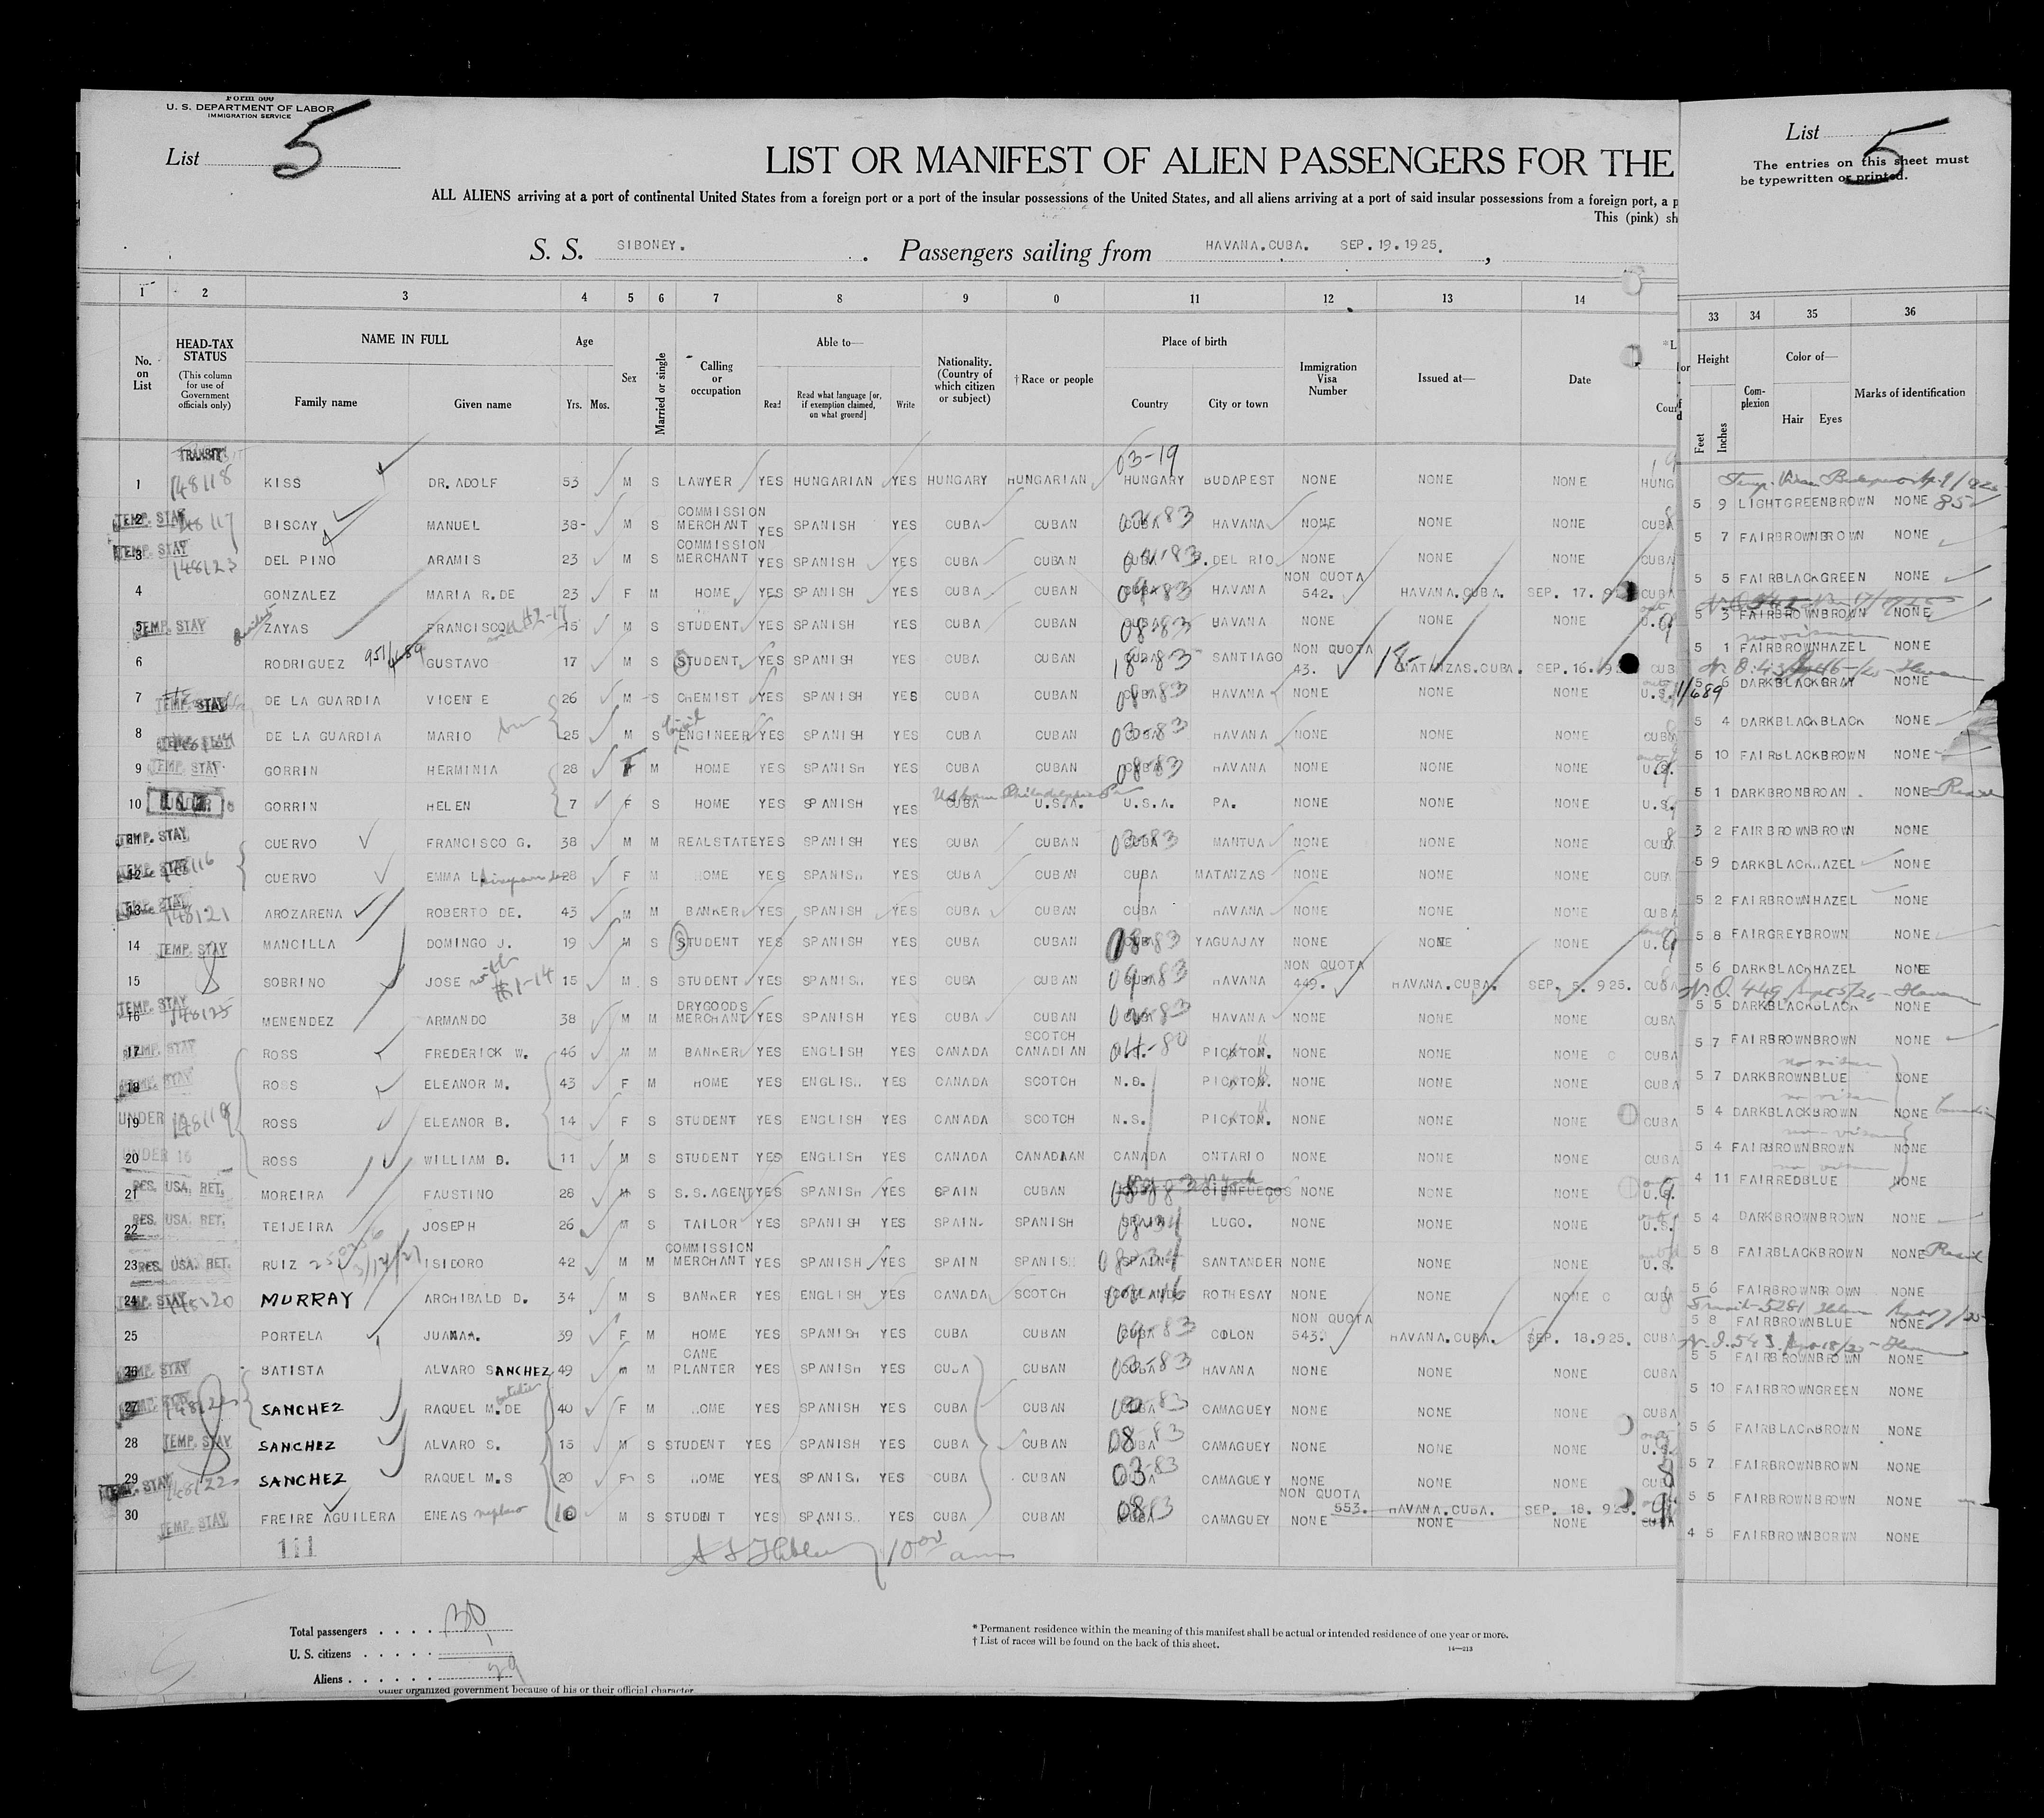 Form 500
U. S. DEPARTMENT OF LABOR
IMMIGRATION SERVICE
List 5
LIST OR MANIFEST OF ALIEN PASSENGERS FOR THE
ALL ALIENS arriving at a port of continental United States from a foreign port or a port of the insular possessions of the United States, and all aliens arriving at a port of said insular possessions from a foreign port, a p
This (pink) sh
S. S. SIBONEY. Passengers sailing from HAVANA.CUBA. SEP.19.1925.
List 5
The entries on this sheet must
be typewritten or printed.
1 2 3 4 5 6 7 8 9 0 11 12 13 14 33 34 35 36
No. on List
HEAD-TAX STATUS
(This column for use of Government officials only)
NAME IN FULL
Family name Given name
Age
Yrs. Mos.
Sex
Married or single
Calling or occupation
Able to—
Read Read what language [or, if exemption claimed, on what ground] Write
Nationality. (Country of which citizen or subject)
† Race or people
Place of birth
Country City or town
Immigration Visa Number
Issued at—
Date
Height
Feet Inches
Complexion
Color of—
Hair Eyes
Marks of identification
TRANSIT 03-19
1 148118 KISS DR. ADOLF 53 M S LAWYER YES HUNGARIAN YES HUNGARY HUNGARIAN HUNGARY BUDAPEST NONE NONE NONE HUNG 5 9 LIGHT GREEN BROWN NONE
2 TEMP. STAY 148117 BISCAY MANUEL 38 M S COMMISSION MERCHANT YES SPANISH YES CUBA CUBAN CUBA HAVANA NONE NONE NONE CUBA 5 7 FAIR BROWN BROWN NONE
3 TEMP. STAY 148123 DEL PINO ARAMIS 23 M S COMMISSION MERCHANT YES SPANISH YES CUBA CUBAN CUBA P. DEL RIO NONE NONE NONE CUBA 5 5 FAIR BLACK GREEN NONE
4 GONZALEZ MARIA R. DE 23 F M HOME YES SPANISH YES CUBA CUBAN CUBA HAVANA NON QUOTA 542. HAVANA.CUBA. SEP. 17. CUBA 5 3 FAIR BROWN BROWN NONE
5 TEMP. STAY ZAYAS FRANCISCO 15 M S STUDENT YES SPANISH YES CUBA CUBAN CUBA HAVANA NONE NONE NONE U.S. 5 1 FAIR BROWN HAZEL NONE
6 RODRIGUEZ GUSTAVO 17 M S STUDENT YES SPANISH YES CUBA CUBAN CUBA SANTIAGO NON QUOTA 43. MATANZAS.CUBA. SEP.16.192 CUB 5 6 DARK BLACK GRAY NONE
7 TEMP. STAY DE LA GUARDIA VICENTE 26 M S CHEMIST YES SPANISH YES CUBA CUBAN CUBA HAVANA NONE NONE NONE U.S. 5 4 DARK BLACK BLACK NONE
8 TEMP. STAY DE LA GUARDIA MARIO 25 M S Civil ENGINEER YES SPANISH YES CUBA CUBAN CUBA HAVANA NONE NONE NONE CUBA 5 10 FAIR BLACK BROWN NONE
9 TEMP. STAY GORRIN HERMINIA 28 F M HOME YES SPANISH YES CUBA CUBAN CUBA HAVANA NONE NONE NONE U.S. 5 1 DARK BRON BROAN NONE
10 GORRIN HELEN 7 F S HOME YES SPANISH YES CUBA U.S.A. U.S.A. PA. NONE NONE NONE U.S. 3 2 FAIR BROWN BROWN NONE
11 TEMP. STAY CUERVO FRANCISCO G. 38 M M REALSTATE YES SPANISH YES CUBA CUBAN CUBA MANTUA NONE NONE NONE CUBA 5 9 DARK BLACK HAZEL NONE
12 TEMP. STAY CUERVO EMMA L. 28 F M HOME YES SPANISH YES CUBA CUBAN CUBA MATANZAS NONE NONE NONE CUBA 5 2 FAIR BROWN HAZEL NONE
13 TEMP. STAY 148121 AROZARENA ROBERTO DE. 43 M M BANKER YES SPANISH YES CUBA CUBAN CUBA HAVANA NONE NONE NONE CUBA 5 8 FAIR GREY BROWN NONE
14 TEMP. STAY MANCILLA DOMINGO J. 19 M S STUDENT YES SPANISH YES CUBA CUBAN CUBA YAGUAJAY NONE NONE NONE U.S. 5 6 DARK BLACK HAZEL NONE
15 SOBRINO JOSE with #1-14 15 M S STUDENT YES SPANISH YES CUBA CUBAN CUBA HAVANA NON QUOTA 449. HAVANA.CUBA. SEP. 5. 925. CUBA 5 5 DARK BLACK BLACK NONE
16 TEMP. STAY 148125 MENENDEZ ARMANDO 38 M M DRYGOODS MERCHANT YES SPANISH YES CUBA CUBAN CUBA HAVANA NONE NONE NONE CUBA 5 7 FAIR BROWN BROWN NONE
17 TEMP. STAY ROSS FREDERICK W. 46 M M BANKER YES ENGLISH YES CANADA SCOTCH CANADIAN PICKTON. NONE NONE NONE CUBA 5 7 DARK BROWN BLUE NONE
18 TEMP. STAY ROSS ELEANOR M. 43 F M HOME YES ENGLISH YES CANADA SCOTCH N.S. PICKTON. NONE NONE NONE CUBA 5 4 DARK BLACK BROWN NONE
19 UNDER 16 148119 ROSS ELEANOR B. 14 F S STUDENT YES ENGLISH YES CANADA SCOTCH N.S. PICKTON. NONE NONE NONE CUBA 5 4 FAIR BROWN BROWN NONE
20 UNDER 16 ROSS WILLIAM B. 11 M S STUDENT YES ENGLISH YES CANADA CANADAAN CANADA ONTARIO NONE NONE NONE CUBA 4 11 FAIR RED BLUE NONE
21 RES. USA. RET. MOREIRA FAUSTINO 28 M S S.S.AGENT YES SPANISH YES SPAIN CUBAN CIENFUEGOS NONE NONE NONE U.S. 5 4 DARK BROWN BROWN NONE
22 RES. USA. RET. TEIJEIRA JOSEPH 26 M S TAILOR YES SPANISH YES SPAIN SPANISH SPAIN LUGO. NONE NONE NONE U.S. 5 8 FAIR BLACK BROWN NONE
23 RES. USA. RET. RUIZ ISIDORO 42 M M COMMISSION MERCHANT YES SPANISH YES SPAIN SPANISH SPAIN SANTANDER NONE NONE NONE U.S. 5 6 FAIR BROWN BROWN NONE
24 TEMP. STAY 148120 MURRAY ARCHIBALD D. 34 M S BANKER YES ENGLISH YES CANADA SCOTCH SCOTLAND ROTHESAY NONE NONE NONE CUBA 5 8 FAIR BROWN BLUE NONE
25 PORTELA JUANA A. 39 F M HOME YES SPANISH YES CUBA CUBAN CUBA COLON NON QUOTA 543. HAVANA.CUBA. SEP. 18.925. CUBA 5 5 FAIR BROWN BROWN NONE
26 TEMP. STAY BATISTA ALVARO SANCHEZ 49 m M CANE PLANTER YES SPANISH YES CUBA CUBAN CUBA HAVANA NONE NONE NONE CUBA 5 10 FAIR BROWN GREEN NONE
27 SANCHEZ RAQUEL M. DE 40 F M HOME YES SPANISH YES CUBA CUBAN CUBA CAMAGUEY NONE NONE NONE CUBA 5 6 FAIR BLACK BROWN NONE
28 TEMP. STAY SANCHEZ ALVARO S. 15 M S STUDENT YES SPANISH YES CUBA CUBAN CUBA CAMAGUEY NONE NONE NONE U.S. 5 7 FAIR BROWN BROWN NONE
29 TEMP. STAY SANCHEZ RAQUEL M.S 20 F S HOME YES SPANISH YES CUBA CUBAN CUBA CAMAGUEY NONE NONE NONE CUBA 5 5 FAIR BROWN BROWN NONE
30 TEMP. STAY FREIRE AGUILERA ENEAS nephew M S STUDENT YES SPANISH YES CUBA CUBAN CUBA CAMAGUEY NON QUOTA 553. HAVANA.CUBA. SEP. 18.925. NONE NONE NONE 4 5 FAIR BROWN BORWN NONE
111
Total passengers . . . . 30
U. S. citizens . . . . . 1
Aliens . . . . . . 29
* Permanent residence within the meaning of this manifest shall be actual or intended residence of one year or more.
† List of races will be found on the back of this sheet.
14—213
other organized government because of his or their official character.